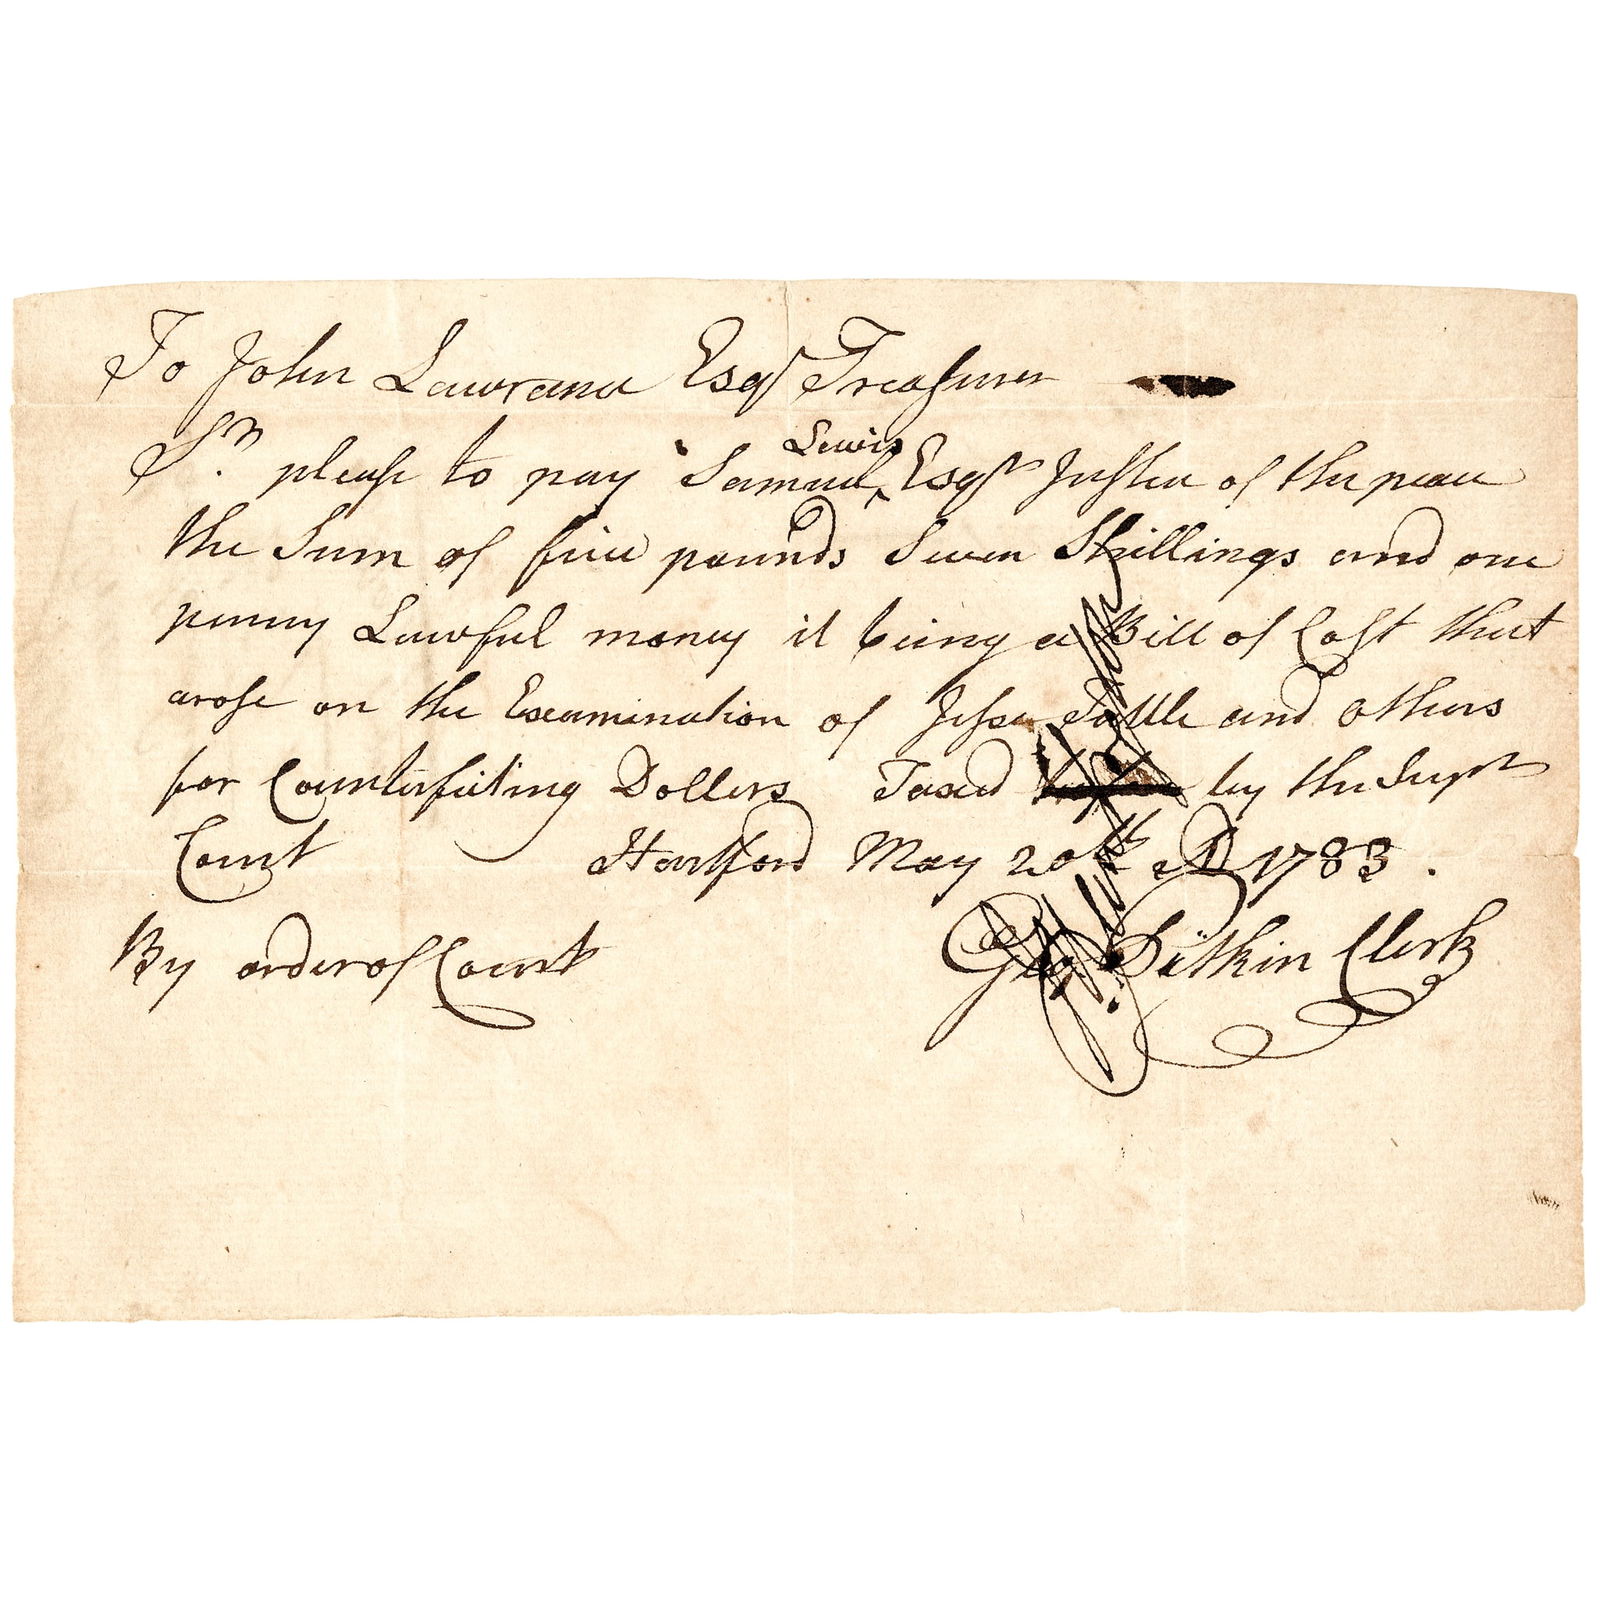 To John Lawrance Esqr Treasurer
Lewis
Sr. please to pay Samuel ^ Esqr Justice of the peace
the Sum of five pounds Seven Shillings and one
penny Lawful money it being a Bill of Cost that
arose on the Examination of Jesse Tuttle and others
for Counterfeiting Dollers Taxed by the Supr
Court Hartford May 20th AD 1783.
By order of Court Geo. Pitkin Clerk